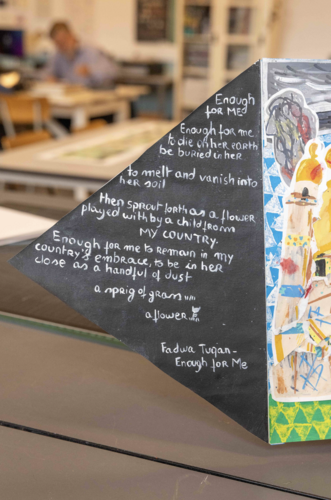 Enough
for ME
Enough for me
to die on her earth
be buried in her
to melt and vanish into
her soil
then sprout forth as a flower
played with by a child from
MY COUNTRY.
Enough for me to remain in my
country's embrace, to be in her
close as a handful of dust
a sprig of grass
a flower
Fadwa Tuqan-
Enough for Me